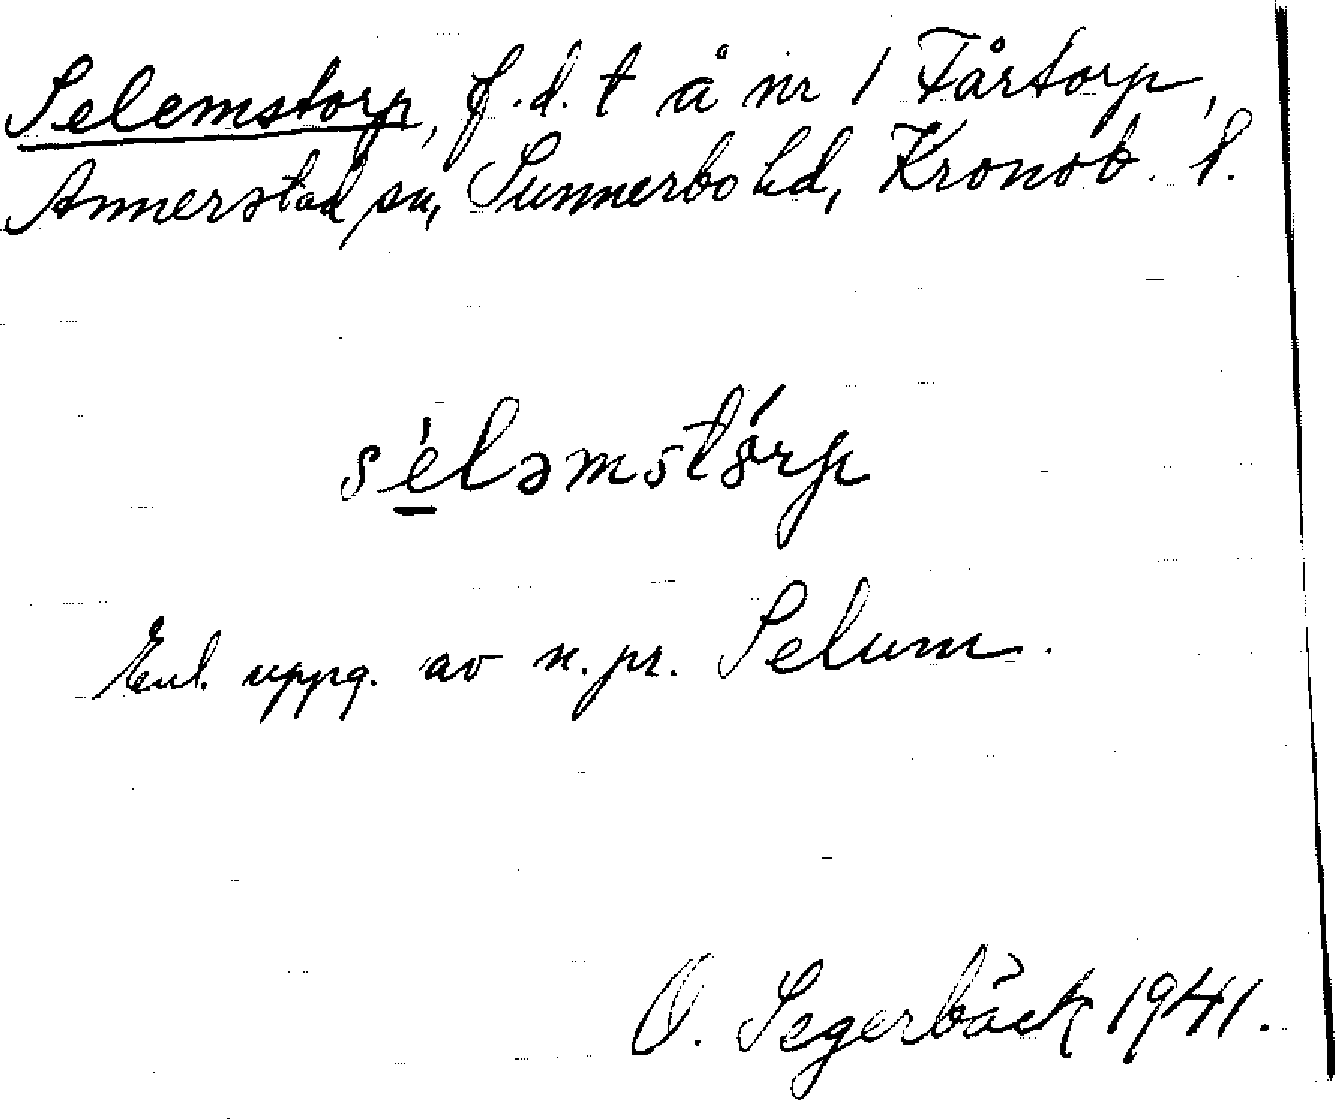 Selemstorp, f.d. t å nr 1 Fårtorp,
Annerstad sn, Sunnerbo hd, Kronob. l.
sélǝmstórp
Enl. uppg. av n.pr. Selum.
O. Segerbäck 1941.